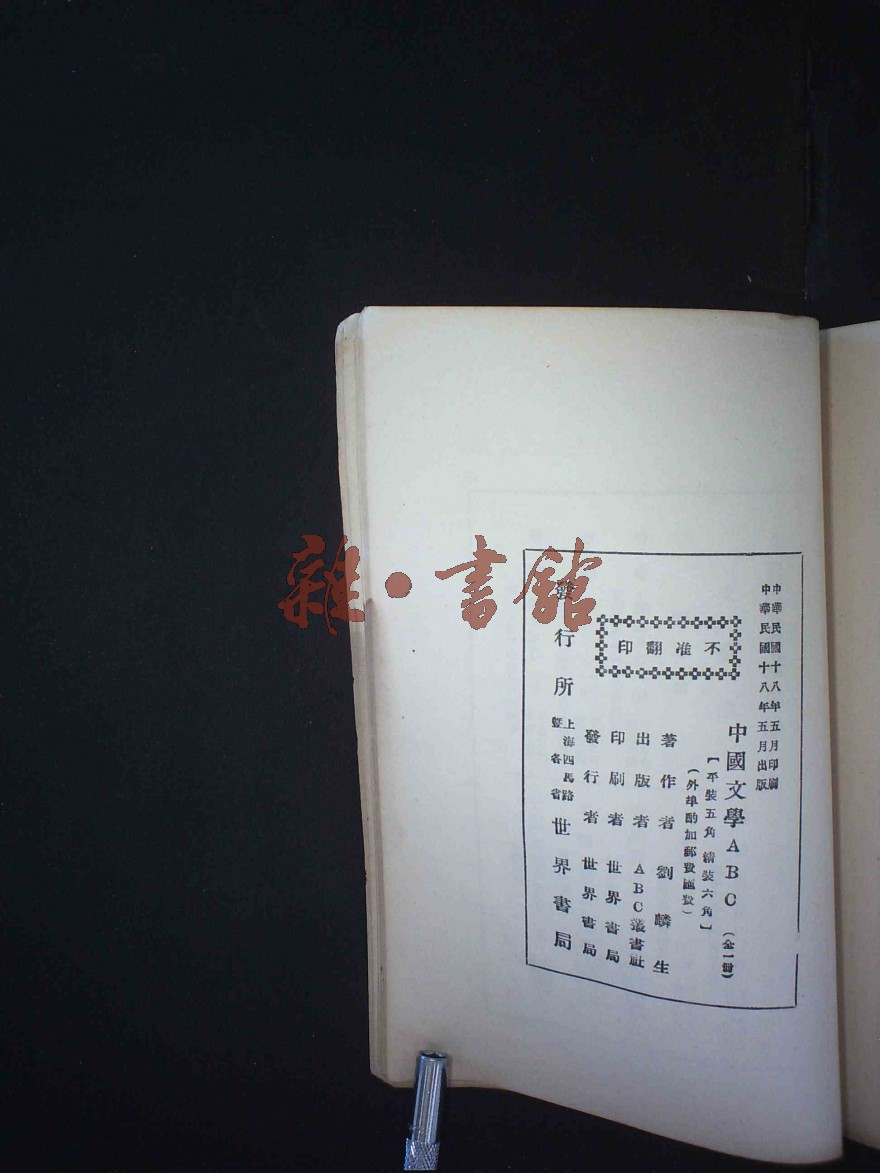 中華民國十八年五月印刷
中華民國十八年五月出版
中國文學ABC（全一冊）
【平裝五角 精裝六角】
（外埠酌加郵費匯費）
不准翻印
著作者 劉麟生
出版者 ABC叢書社
印刷者 世界書局
發行者 世界書局
發行所 上海四馬路暨各省 世界書局
雜·書館